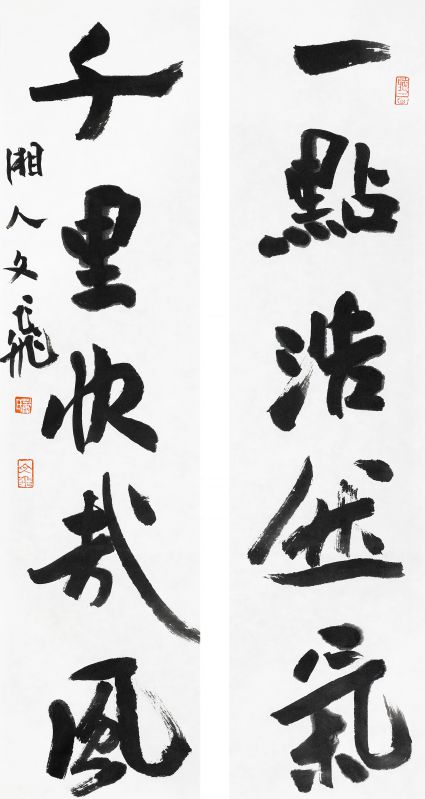 一點浩然氣
千里快哉風
湘人文飛